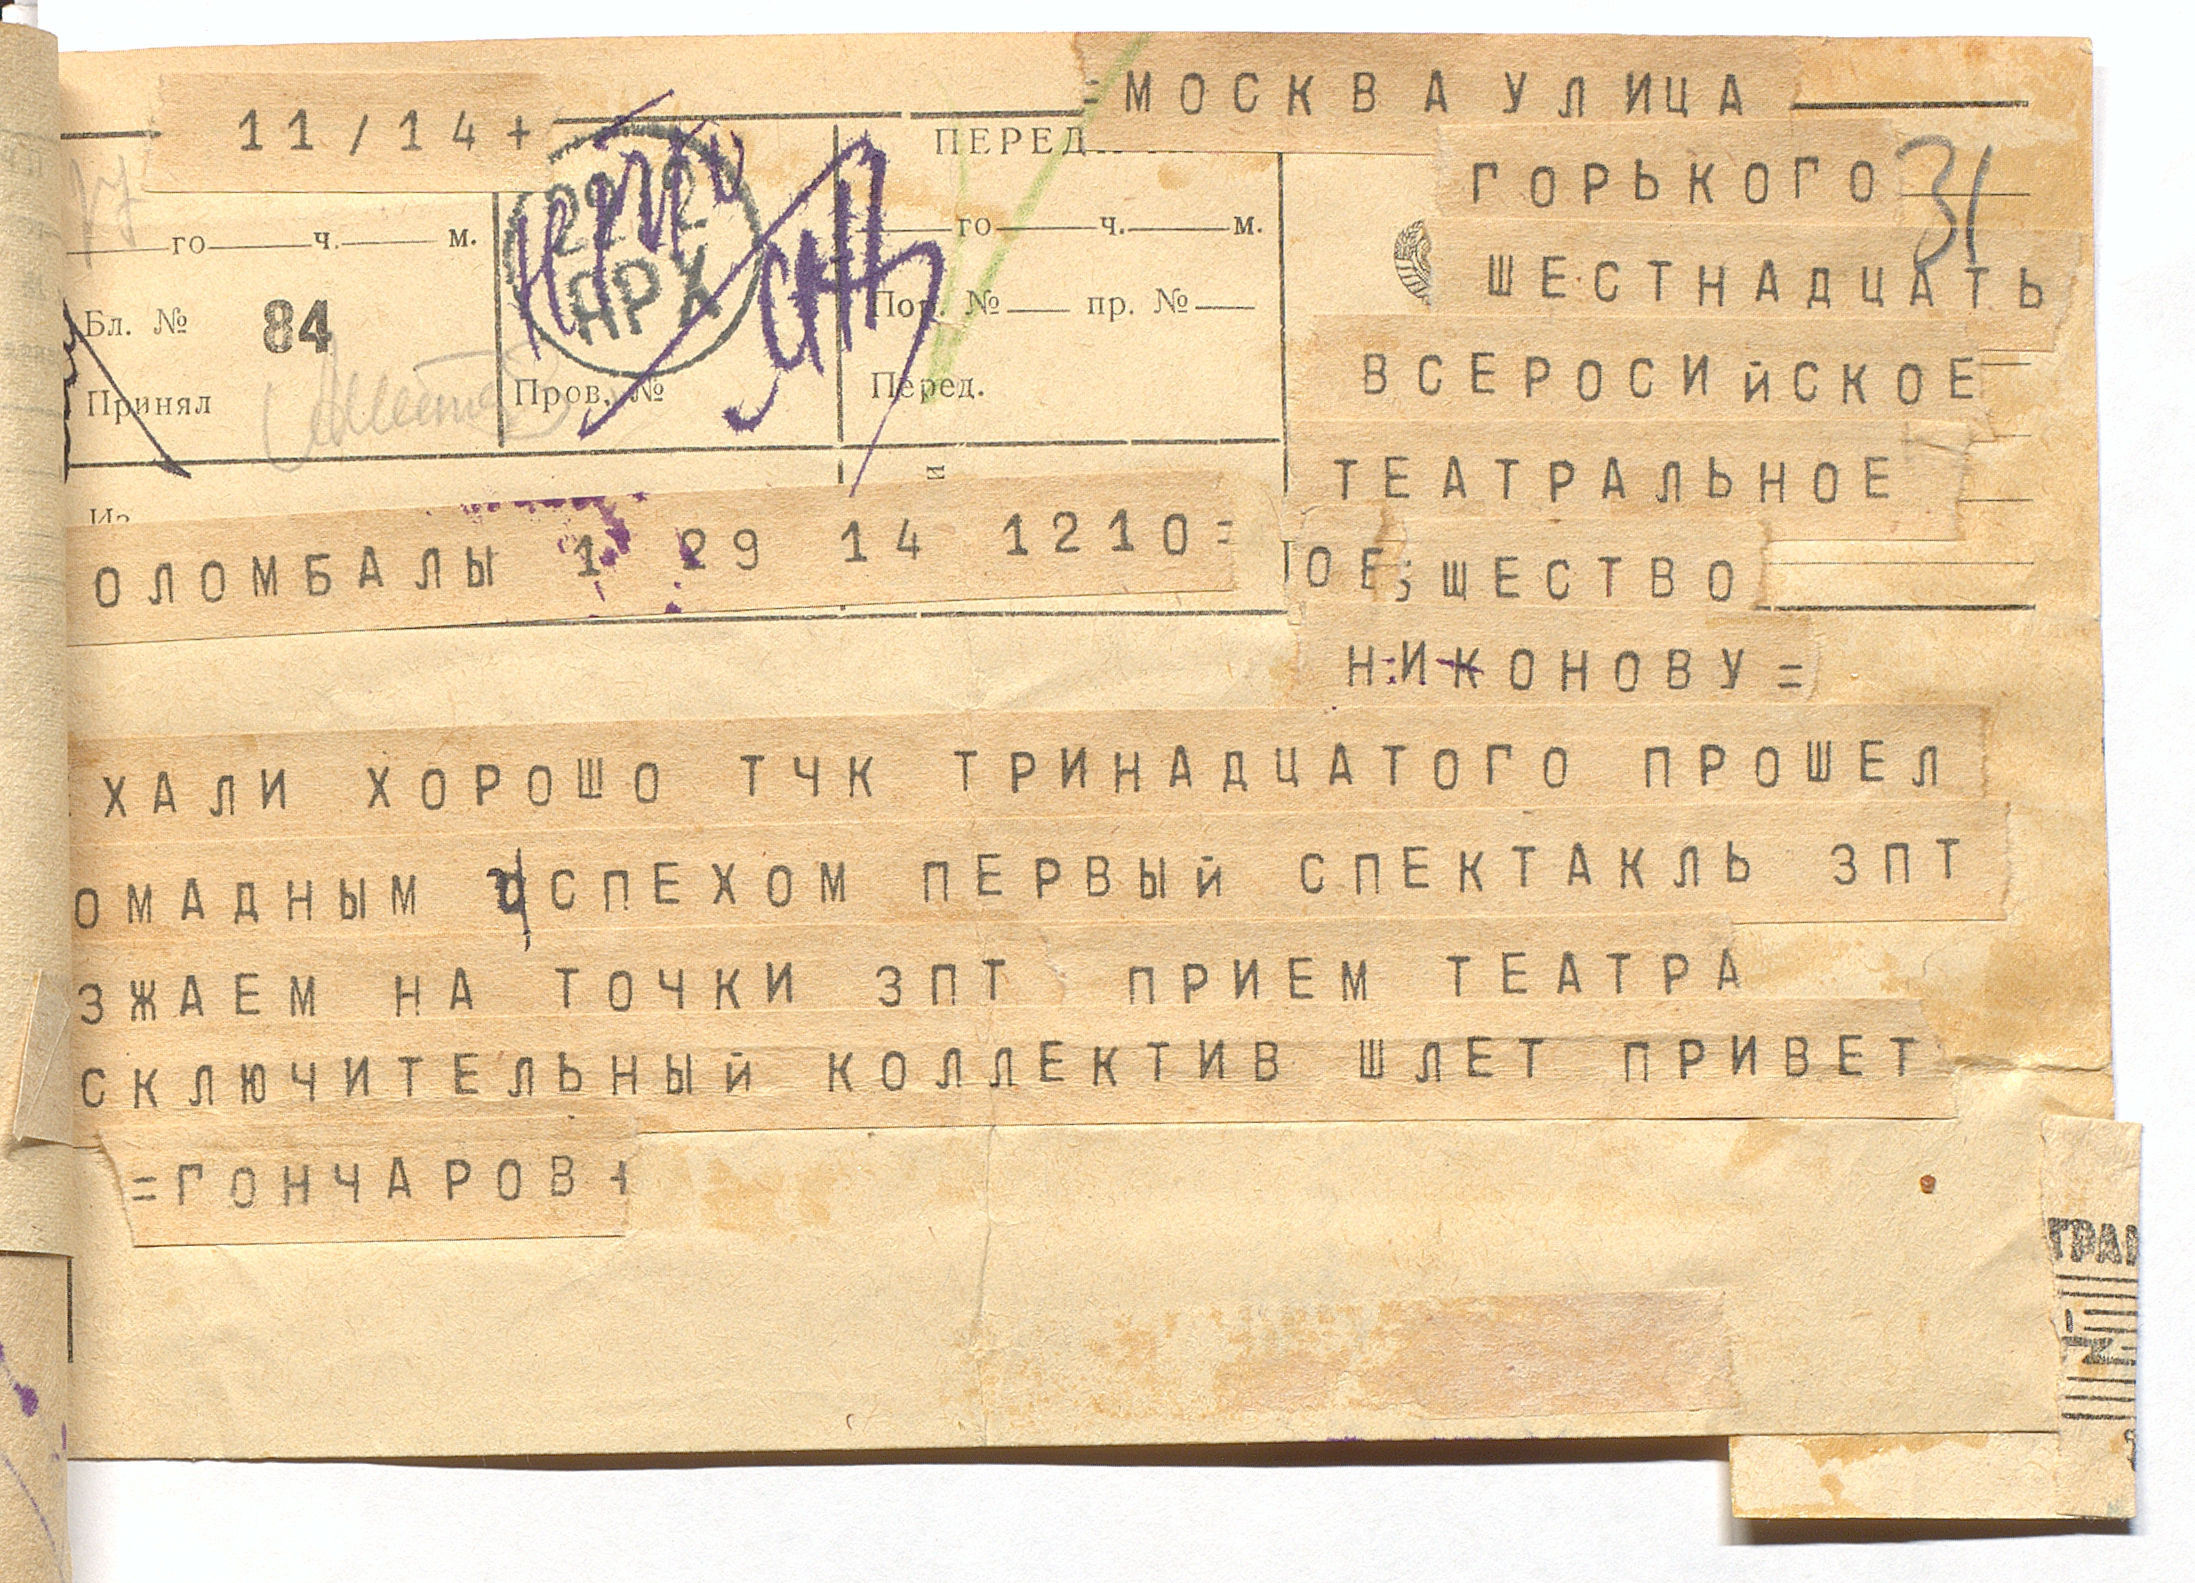 11/14+
=МОСКВА УЛИЦА
ГОРЬКОГО 31
ШЕСТНАДЦАТЬ
ВСЕРОСИЙСКОЕ
ТЕАТРАЛЬНОЕ
ШЕСТВО
НИКОНОВУ=
го ч. м.
го ч. м.
Бл. № 84
Пор. № пр. №
Принял
Пров. №
Перед.
Из
ОЛОМБАЛЫ 1 29 14 1210=
ХАЛИ ХОРОШО ТЧК ТРИНАДЦАТОГО ПРОШЕЛ
ОМАДНЫМ УСПЕХОМ ПЕРВЫЙ СПЕКТАКЛЬ ЗПТ
ЗЖАЕМ НА ТОЧКИ ЗПТ ПРИЕМ ТЕАТРА
СКЛЮЧИТЕЛЬНЫЙ КОЛЛЕКТИВ ШЛЕТ ПРИВЕТ
=ГОНЧАРОВ+
ГРАМ